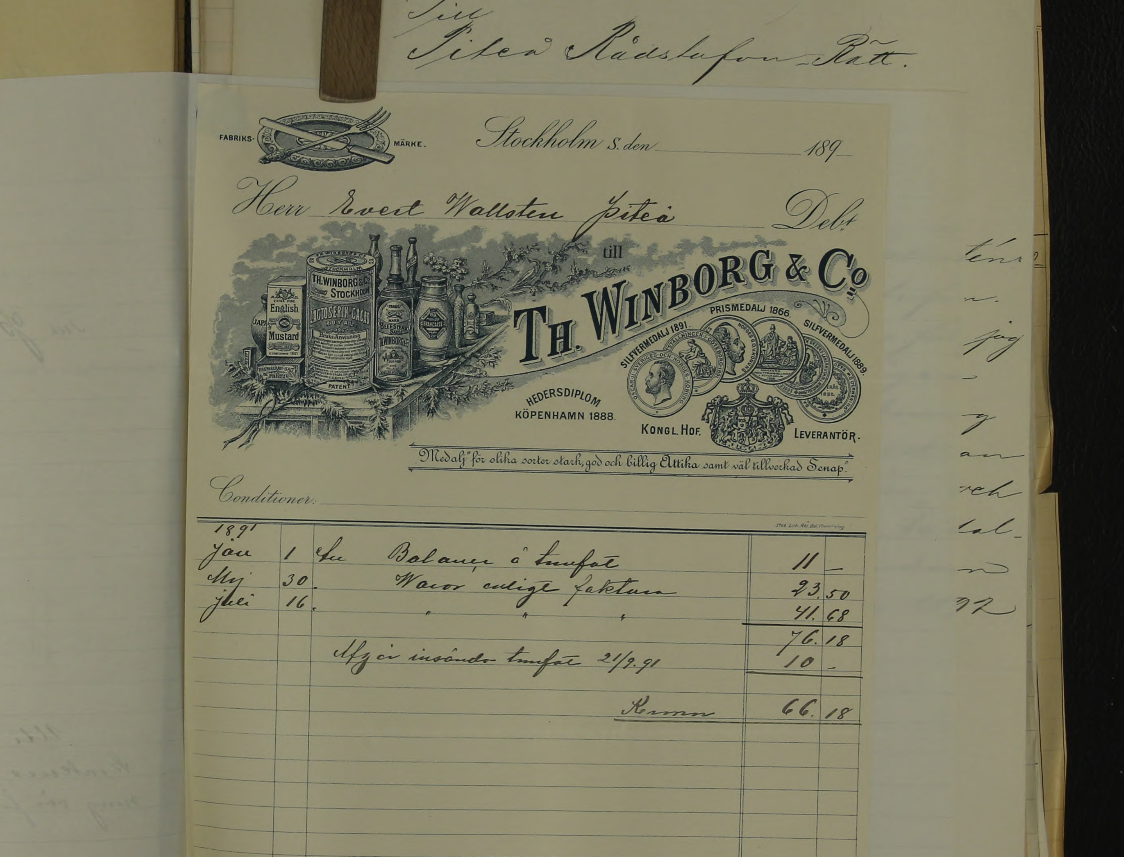 Till
Piteå Rådstufvu-Rätt.
FABRIKS- MÄRKE.
Stockholm S. den 189
Herr Evert Wallsten Piteå Debt
till
TH. WINBORG & Co
STOCKHOLM
TH. WINBORG & Co
STOCKHOLM
English
Mustard
PATENT
SILFVERMEDALJ 1891.
PRISMEDALJ 1866.
SILFVERMEDALJ 1889.
HEDERSDIPLOM
KÖPENHAMN 1888.
KONGL. HOF. LEVERANTÖR.
"Medalj" för olika sorter stark, god och billig Ättika samt väl tillverkad Senap".
Conditioner:
1891
Jan 1 Balance å 11 –
Maj 30. Waror enligt faktura 23.50
Juli 16. " " " 41.68
76.18
insända 21/9.91 10 –
Kronor 66.18